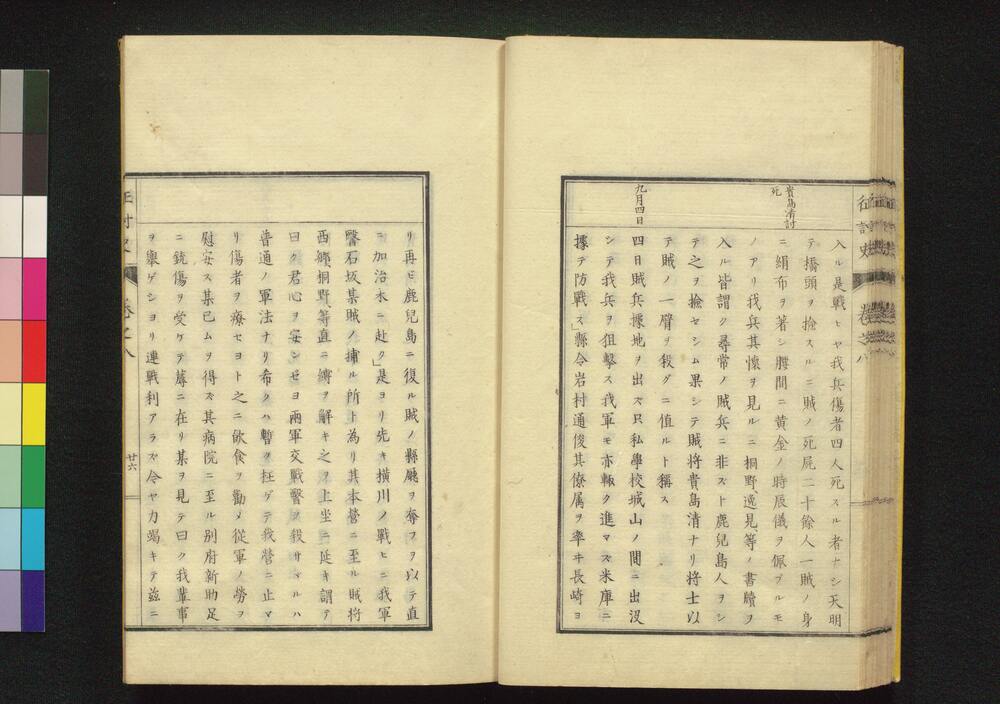 征討史 卷之八
入ル是戰ヒヤ我兵傷者四人死スル者ナシ天明
テ橋頭ヲ撿スルニ賊ノ死屍二十餘人一賊ノ身
貴島清討死
ニ絹布ヲ著シ腰間ニ黃金ノ時辰儀ヲ佩ブルモ
ノアリ我兵其懷ヲ見ルニ桐野、逸見等ノ書牘ヲ
入ル皆謂ク尋常ノ賊兵ニ非スト鹿兒島人ヲシ
テ之ヲ撿セシム果シテ賊將貴島清ナリ將士以
テ賊ノ一臂ヲ殺グニ値ルト稱ス
九月四日
四日賊兵據地ヲ出ズ只私學校城山ノ間ニ出沒
シテ我兵ヲ狙擊ス我軍モ亦輙ク進マズ米庫ニ
據テ防戰ス」縣令岩村通俊其僚属ヲ率ヰ長崎ヨ
リ再ビ鹿兒島ニ復ル賊ノ縣廳ヲ奪フヲ以テ直
ニ加治木ニ赴ク」是ヨリ先キ横川ノ戰ヒニ我軍
醫石坂某賊ノ捕ル所ト為リ其本營ニ至ル賊將
西鄉桐野等直ニ縛ヲ解キ之ヲ上坐ニ延キ謂テ
曰ク君心ヲ安ンゼヨ兩軍交戰醫ヲ殺サヾルハ
普通ノ軍法ナリ希クハ暫ク枉ゲテ我營ニ止マ
リ傷者ヲ療セヨト之ニ飮食ヲ勸メ從軍ノ勞ヲ
慰安ス某已ムヲ得ズ其病院ニ至ル別府新助足
ニ銃傷ヲ受ケテ蓐ニ在リ某ヲ見テ曰ク我輩事
ヲ擧ゲショリ連戰利アラズ今ヤ力竭キテ玆ニ
征討史 卷之八 廿六